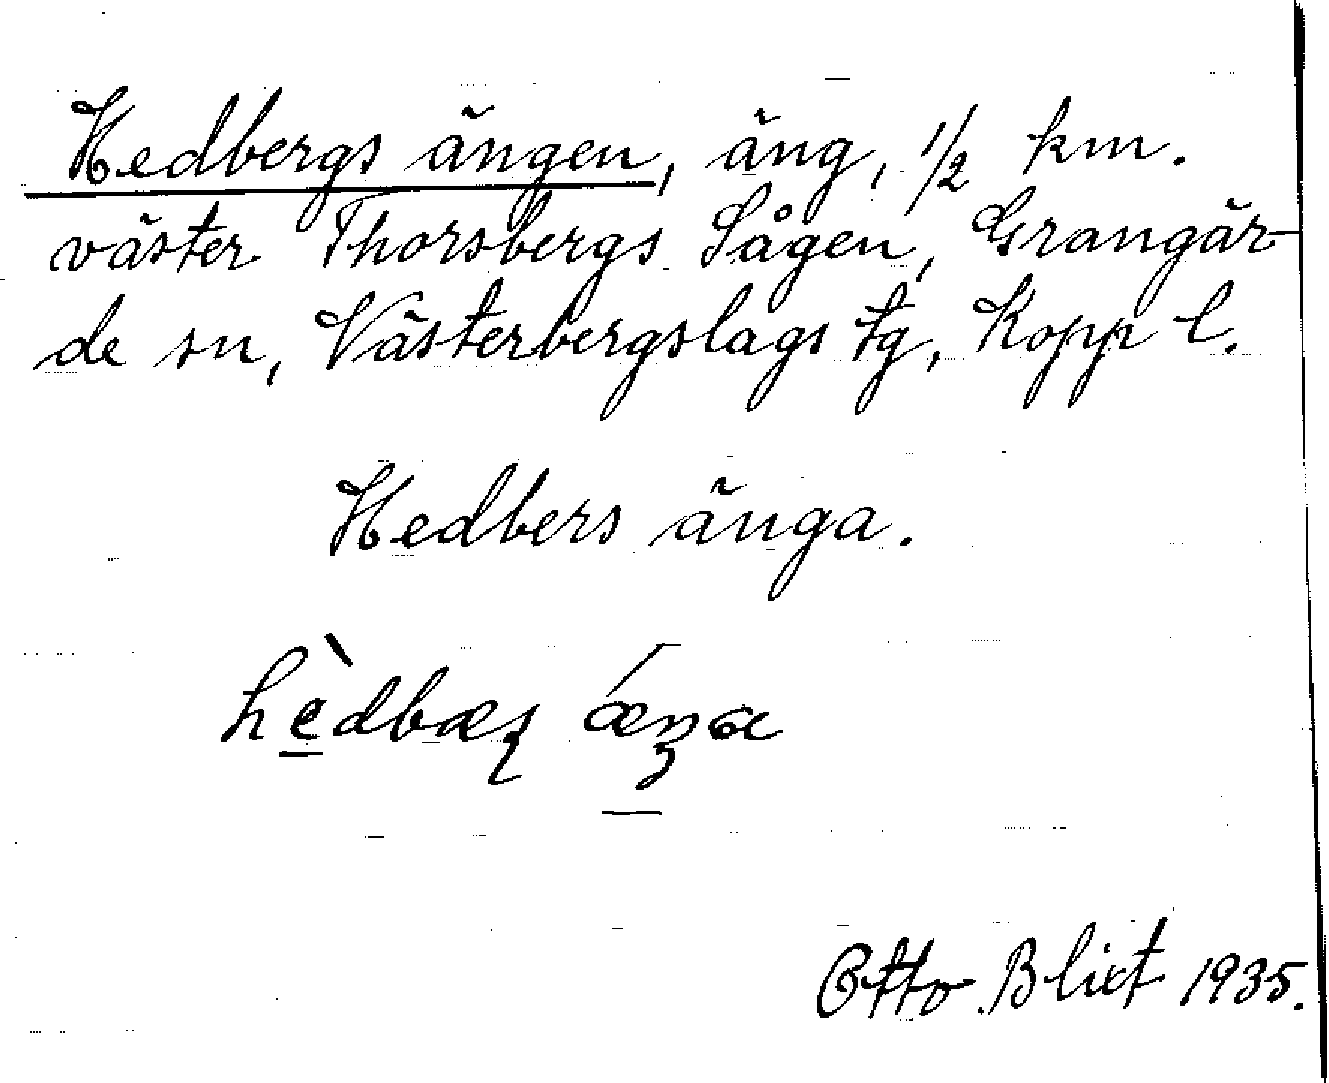 Hedbergs ängen, äng, 1/2 km.
väster Thorsbergs Sågen, Grangär-
de sn, Västerbergslags tg, Kopp l.
Hedbers änga.
hèdbæʂ ǽŋa
Otto Blixt 1935.